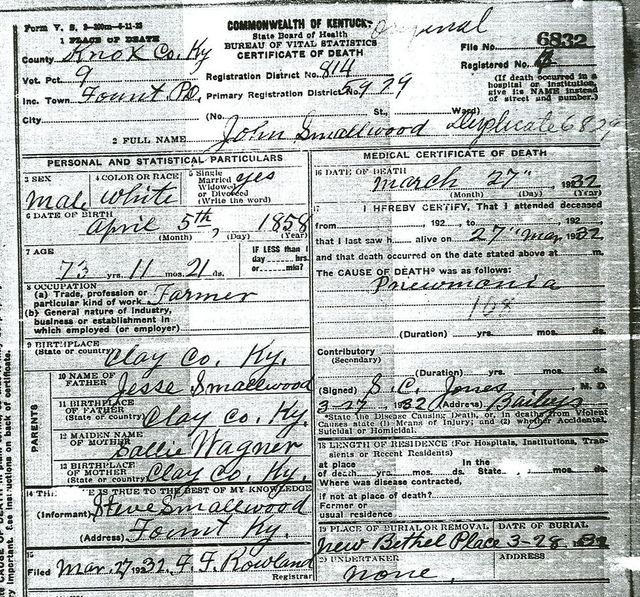 Form V. S. COMMONWEALTH OF KENTUCKY original
1 PLACE OF DEATH State Board of Health
BUREAU OF VITAL STATISTICS File No. 6832
County Knox Co. Ky CERTIFICATE OF DEATH Registered No.
Vot. Pct. 9 Registration District No. 814 (If death occurred in a hospital or institution, give its NAME instead of street and number.)
Inc. Town Fount P.O. Primary Registration District No. 5929
City (No. St., Ward)
2 FULL NAME John Smallwood Duplicate 6829
PERSONAL AND STATISTICAL PARTICULARS
3 SEX Male
4 COLOR OR RACE White
5 Single Married Widowed or Divorced (Write the word) yes
6 DATE OF BIRTH April 5th, 1858
(Month) (Day) (Year)
7 AGE IF LESS than 1
73 yrs. 11 mos. 21 ds. day hrs. or min?
8 OCCUPATION
(a) Trade, profession or particular kind of work Farmer
(b) General nature of industry,
business or establishment in
which employed (or employer)
9 BIRTHPLACE
(State or country) Clay Co. Ky.
PARENTS
10 NAME OF FATHER Jesse Smallwood
11 BIRTHPLACE OF FATHER (State or country) Clay Co. Ky.
12 MAIDEN NAME OF MOTHER Sallie Wagner
13 BIRTHPLACE OF MOTHER (State or country) Clay Co. Ky.
14 IS TRUE TO THE BEST OF MY KNOWLEDGE
(Informant) Steve Smallwood
(Address) Fount Ky.
15
Filed Mar. 27 1932. F. F. Rowland
Registrar
MEDICAL CERTIFICATE OF DEATH
16 DATE OF DEATH
March 27" 1932
(Month) (Day) (Year)
I HEREBY CERTIFY, That I attended deceased
from , 192 , to , 192
that I last saw h alive on 27" Mar 1932
and that death occurred on the date stated above at m.
The CAUSE OF DEATH* was as follows:
Pneumonia
108
(Duration) yrs. mos. ds.
Contributory
(Secondary)
(Duration) yrs. mos. ds.
(Signed) S. C. Jones M. D.
3-27 1932 (Address) Baileys
*State the Disease Causing Death, or, in deaths from Violent
Causes state (1) Means of Injury; and (2) whether Accidental,
Suicidal or Homicidal.
18 LENGTH OF RESIDENCE (For Hospitals, Institutions, Transients or Recent Residents)
at place In the
of death yrs. mos. ds. State mos. ds.
Where was disease contracted,
if not at place of death?
Former or
usual residence
19 PLACE OF BURIAL OR REMOVAL DATE OF BURIAL
New Bethel Place 3-28 1932
20 UNDERTAKER ADDRESS
none.